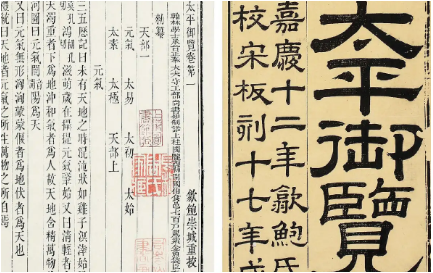 太平御覽
嘉慶十二年歙鮑氏
校宋板刻十七年成
太平御覽卷第一
歙鮑崇城重校
敕纂
天部一
元氣 太易 太初 太始
太素 太極 天部上
元氣
三五歷記曰未有天地之時混沌狀如雞子溟涬始
鴻滋萌歲在攝提元氣肇始又曰清輕者
天濁重者下為地沖和氣者為人故天地含精萬物
河圖曰元氣闓陽為天
曰元氣無形洶洶蒙蒙偃者為地伏者為天也
禮統曰天地者元氣之所生萬物之所自焉